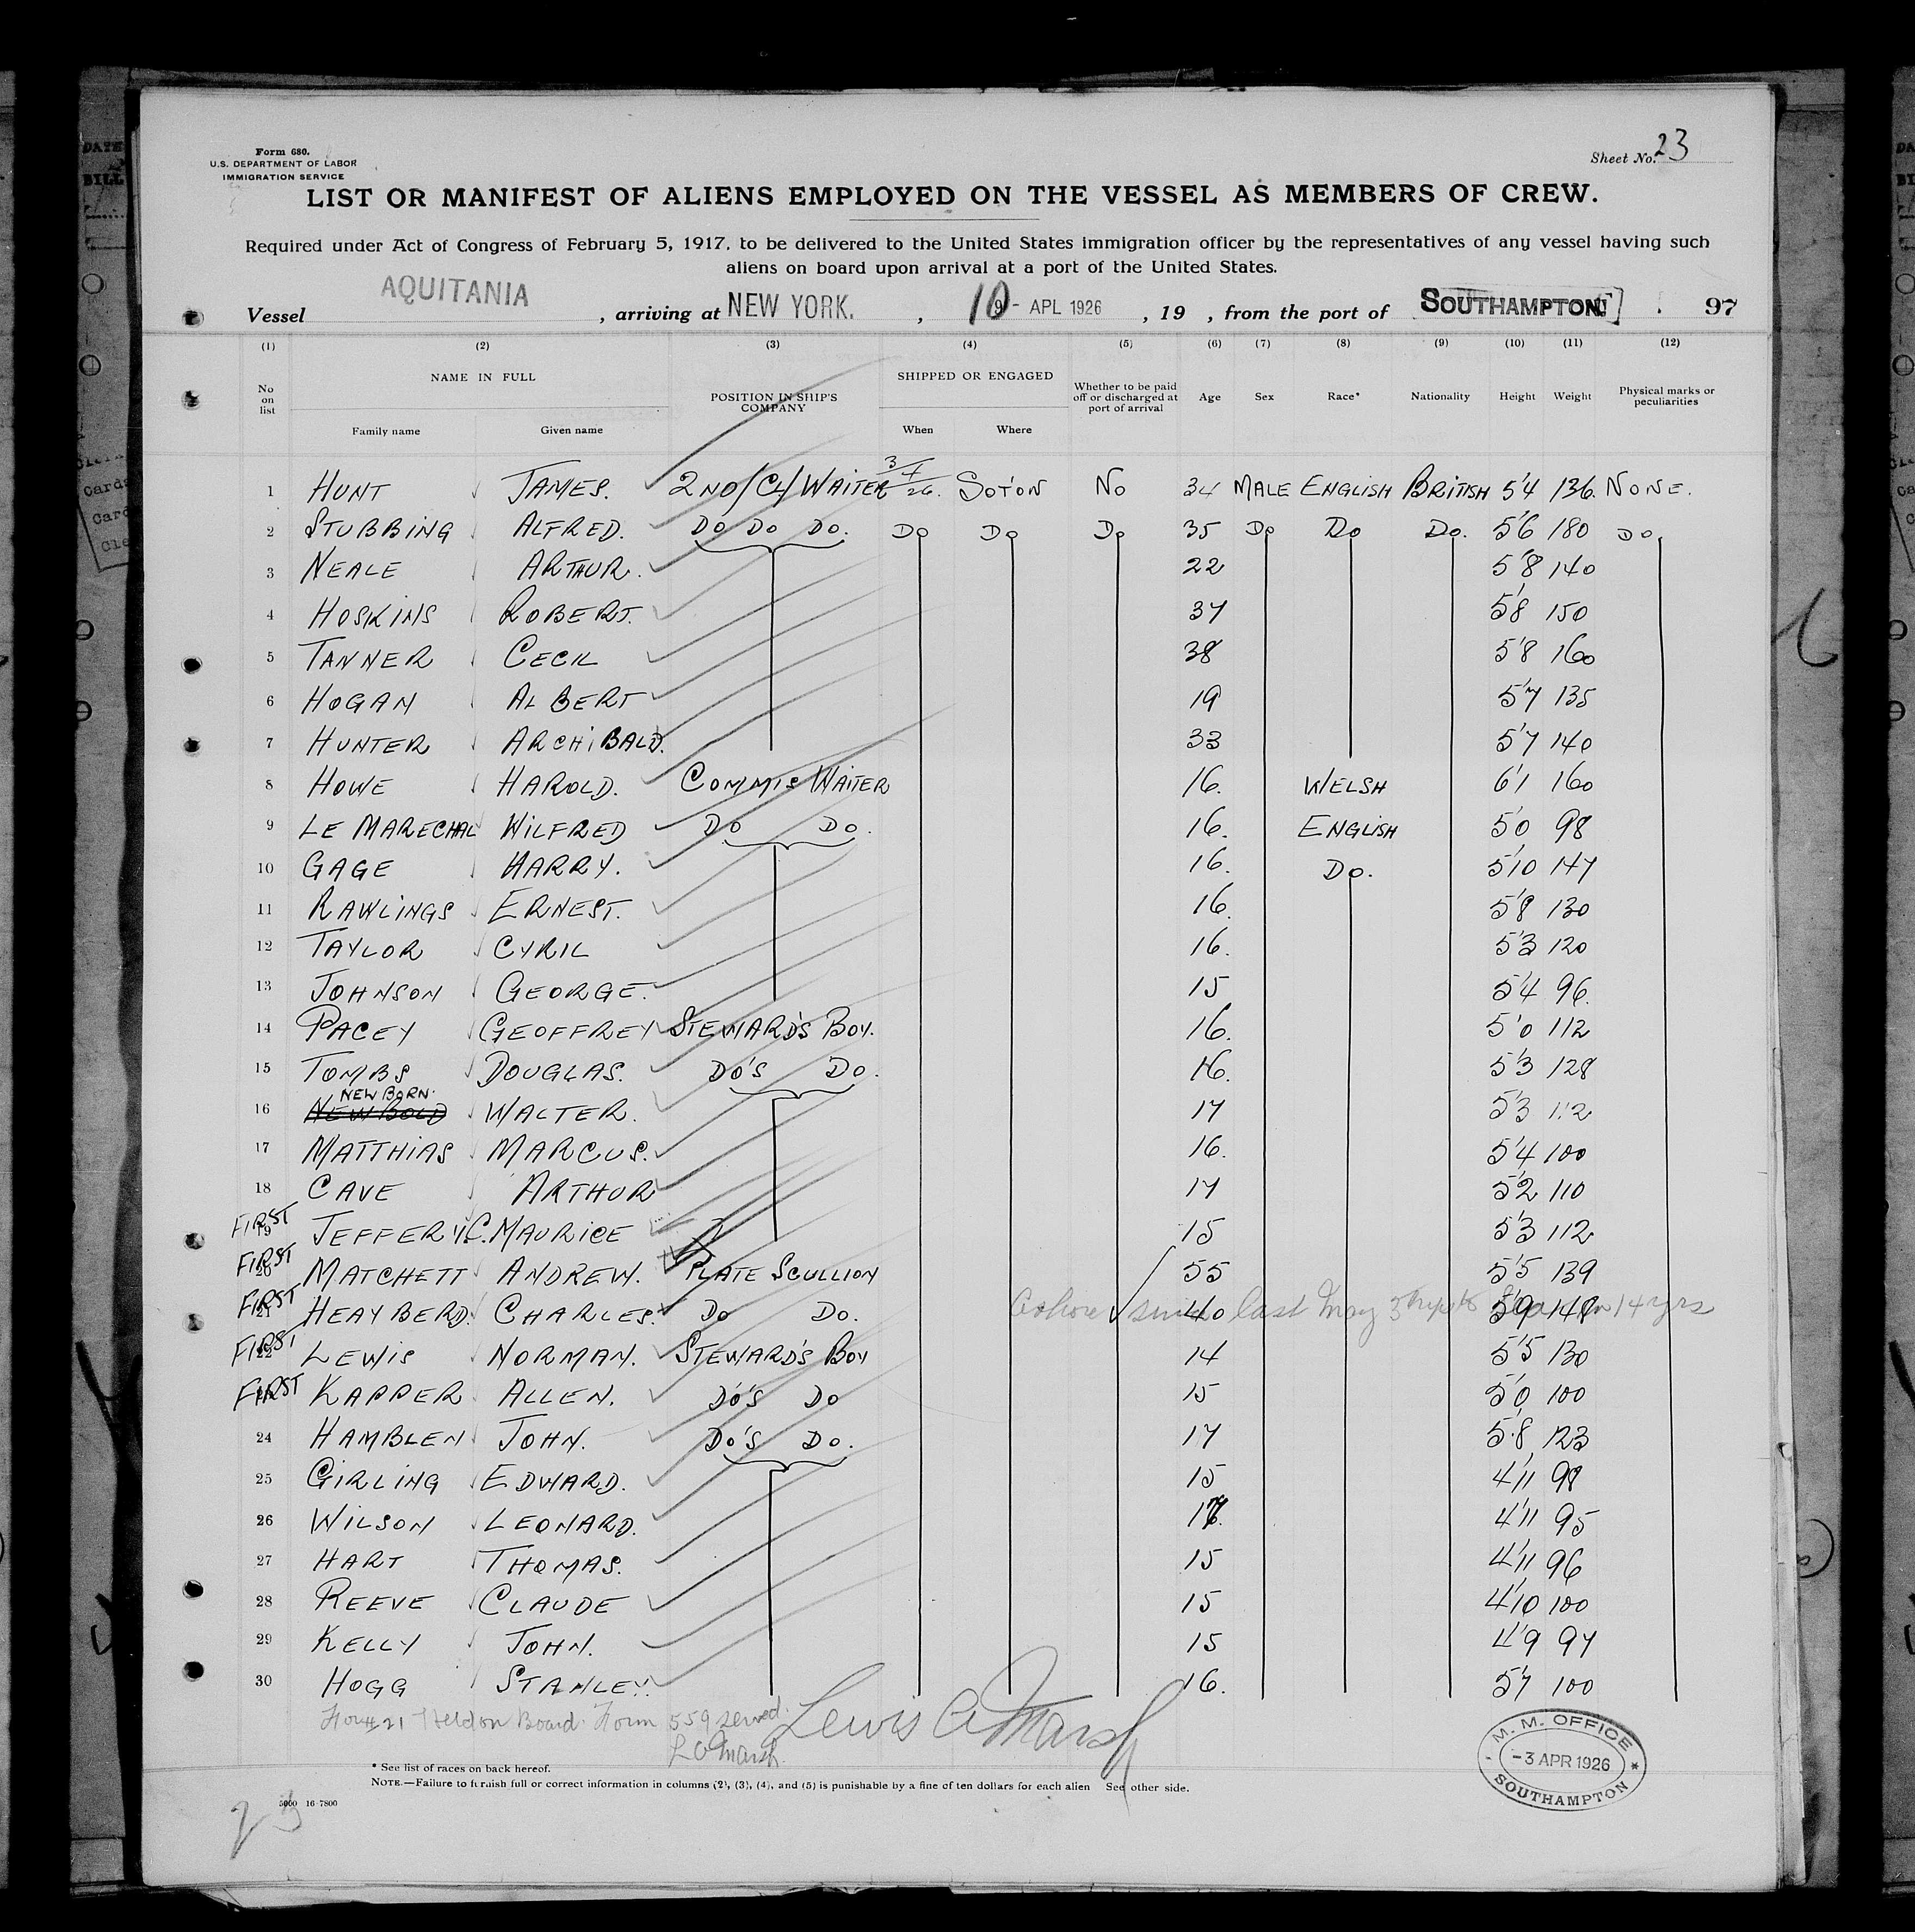 Form 680.
U.S. DEPARTMENT OF LABOR
IMMIGRATION SERVICE
Sheet No. 23
LIST OR MANIFEST OF ALIENS EMPLOYED ON THE VESSEL AS MEMBERS OF CREW.
Required under Act of Congress of February 5, 1917, to be delivered to the United States immigration officer by the representatives of any vessel having such
aliens on board upon arrival at a port of the United States.
Vessel AQUITANIA, arriving at NEW YORK., 10 - APL 1926, 19 , from the port of SOUTHAMPTON 97
(1) (2) (3) (4) (5) (6) (7) (8) (9) (10) (11) (12)
No on list NAME IN FULL Family name Given name POSITION IN SHIP'S COMPANY SHIPPED OR ENGAGED When Where Whether to be paid off or discharged at port of arrival Age Sex Race* Nationality Height Weight Physical marks or peculiarities
1 HUNT JAMES. 2ND/CL/WAITER 3/4/26. SOTON NO 34 MALE ENGLISH BRITISH 5'4 136. NONE.
2 STUBBING ALFRED. DO DO DO. DO DO DO 35 DO DO DO. 5'6 180 DO.
3 NEALE ARTHUR. 22 5'8 140
4 HOSKINS ROBERT. 37 5'8 150
5 TANNER CECIL 38 5'8 160
6 HOGAN ALBERT 19 5'7 135
7 HUNTER ARCHIBALD. 33 5'7 140
8 HOWE HAROLD. COMMIS WAITER 16. WELSH 6'1 160
9 LE MARECHAL WILFRED DO DO. 16. ENGLISH 5'0 98
10 GAGE HARRY. 16. DO. 5'10 147
11 RAWLINGS ERNEST. 16. 5'8 130
12 TAYLOR CYRIL 16. 5'3 120
13 JOHNSON GEORGE. 15 5'4 96.
14 PACEY GEOFFREY STEWARD'S BOY. 16. 5'0 112
15 TOMBS DOUGLAS. DO'S DO. 16. 5'3 128
16 NEWBOLD NEW BORN. WALTER. 17 5'3 112
17 MATTHIAS MARCUS. 16. 5'4 100
18 CAVE ARTHUR 17 5'2 110
FIRST 19 JEFFERY C. MAURICE 15 5'3 112
FIRST 20 MATCHETT ANDREW. PLATE SCULLION 55 5'5 139
FIRST 21 HEAYBERD. CHARLES. DO DO. 40 5'9 148
Ashore since last May 14 yrs
FIRST 22 LEWIS NORMAN. STEWARD'S BOY 14 5'5 130
FIRST KAPPER ALLEN. DO'S DO 15 5'0 100
24 HAMBLEN JOHN. DO'S DO. 17 5'8 123
25 GIRLING EDWARD. 15 4'11 98
26 WILSON LEONARD. 4'11 95
27 HART THOMAS. 15 4'11 96
28 REEVE CLAUDE 15 4'10 100
29 KELLY JOHN. 15 4'9 97
30 HOGG STANLEY. 16. 5'7 100
#21 Held on Board. Form 559 served.
L A Marsh.
Lewis A Marsh
* See list of races on back hereof.
NOTE.—Failure to furnish full or correct information in columns (2), (3), (4), and (5) is punishable by a fine of ten dollars for each alien See other side.
16-7800
M. M. OFFICE
-3 APR 1926
SOUTHAMPTON
23